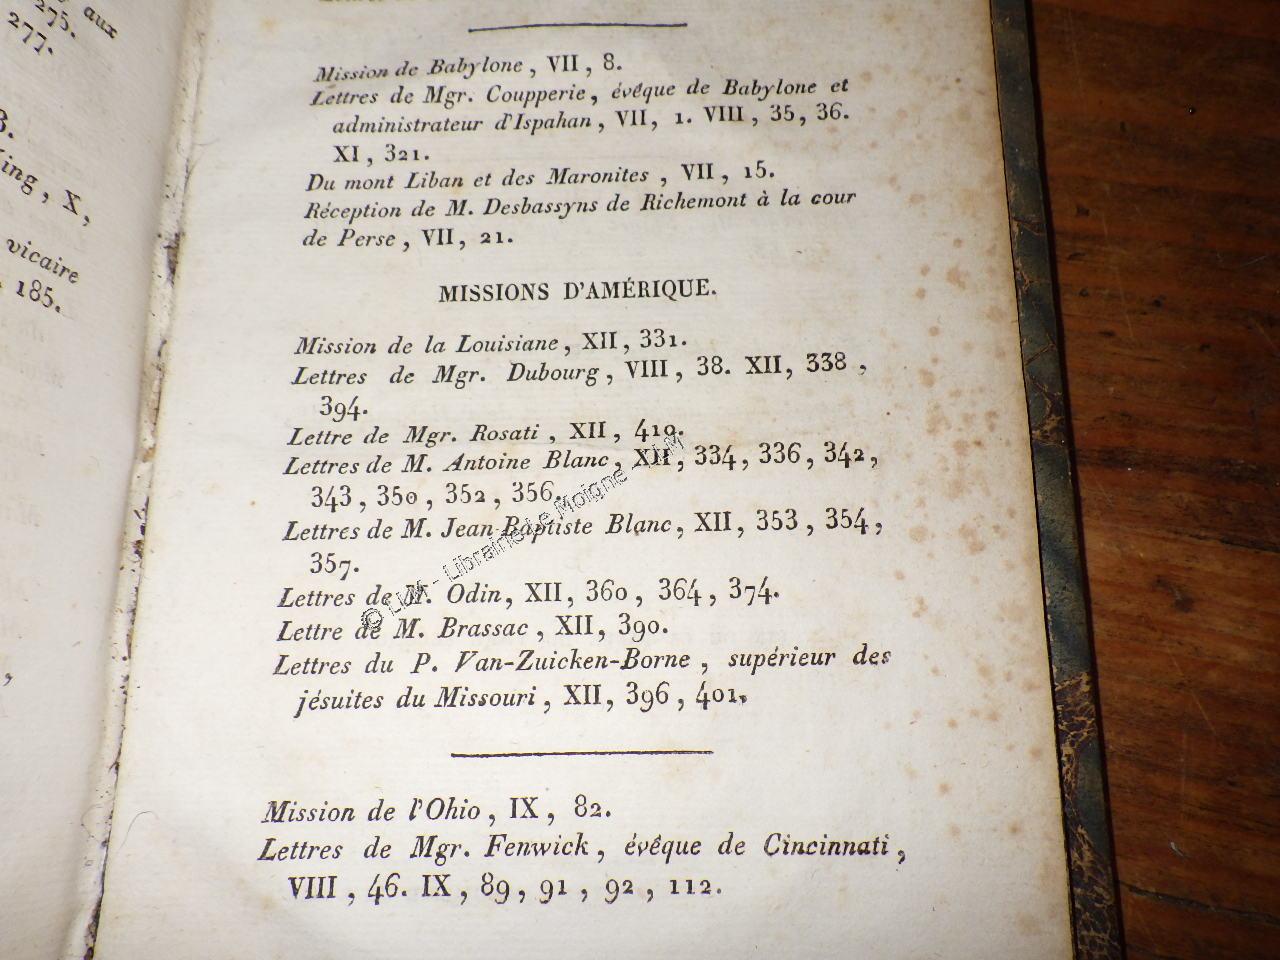 aux
275.
277.
3.
King, X,
vicaire
185.
Mission de Babylone, VII, 8.
Lettres de Mgr. Coupperie, évêque de Babylone et
administrateur d'Ispahan, VII, 1. VIII, 35, 36.
XI, 321.
Du mont Liban et des Maronites, VII, 15.
Réception de M. Desbassyns de Richemont à la cour
de Perse, VII, 21.
MISSIONS D'AMÉRIQUE.
Mission de la Louisiane, XII, 331.
Lettres de Mgr. Dubourg, VIII, 38. XII, 338,
394.
Lettre de Mgr. Rosati, XII, 410.
Lettres de M. Antoine Blanc, XII, 334, 336, 342,
343, 350, 352, 356.
Lettres de M. Jean-Baptiste Blanc, XII, 353, 354,
357.
Lettres de M. Odin, XII, 360, 364, 374.
Lettre de M. Brassac, XII, 390.
Lettres du P. Van-Zuicken-Borne, supérieur des
jésuites du Missouri, XII, 396, 401.
Mission de l'Ohio, IX, 82.
Lettres de Mgr. Fenwick, évêque de Cincinnati,
VIII, 46. IX, 89, 91, 92, 112.
© LLM - Librairie Le Moigne - LLM